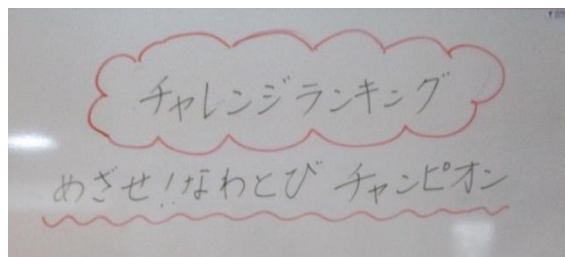 チャレンジランキング
めざせ!!なわとび チャンピオン